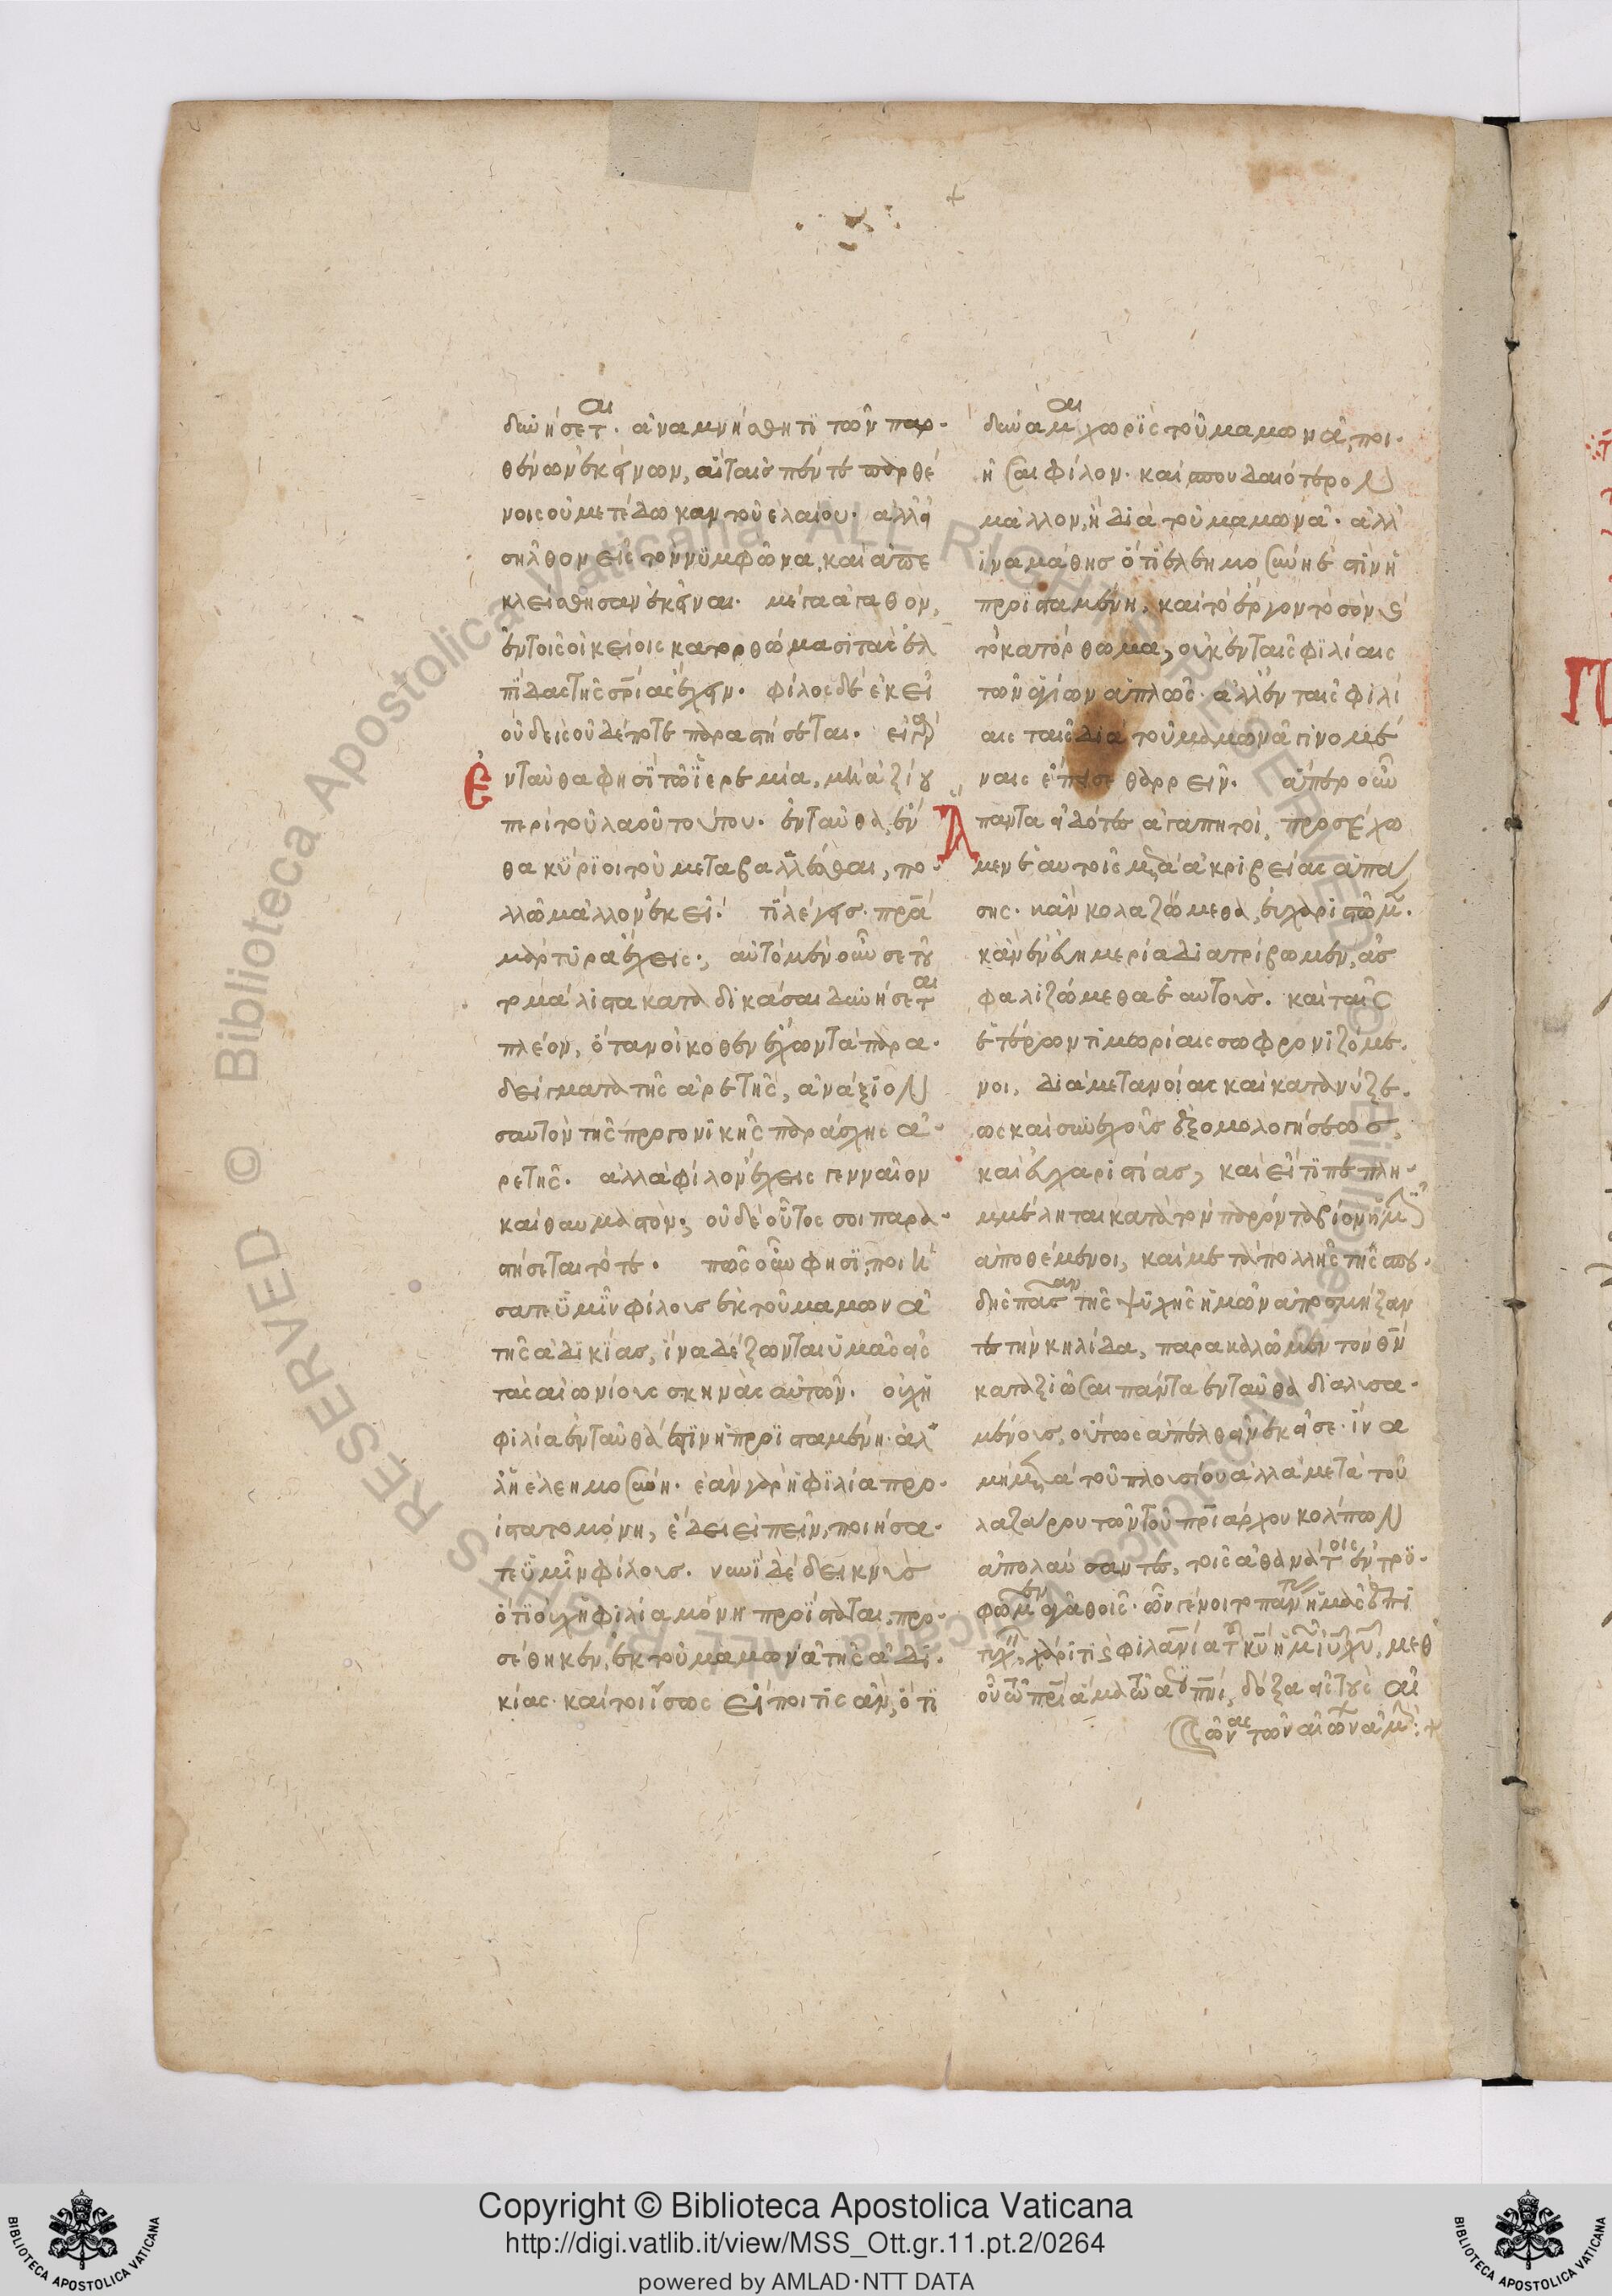 δυνήσεται. ἀναμνήσθητι τῶν παρ
θένων ἐκείνων, αἷς αἱ πέντε παρθέ
νοις οὐ μετέδωκαν τοῦ ἐλαίου. ἀλλ' εἰ
σῆλθον εἰς τὸν νυμφῶνα, καὶ ἀπε
κλείσθησαν ἐκεῖναι. μέγα ἀγαθὸν,
ἐν τοῖς οἰκείοις κατορθώμασι τὰς ἐλ
πίδας τῆς σρίας ἔχειν. φίλος δὲ ἐκεῖ
οὐδεὶς οὐδέποτε παραστήσεται. εἰ γὰρ
ἐνταῦθα φησὶ τῷ ἱερεμία, μὴ ἀξίου
περὶ τοῦ λαοῦ τούτου. ἐνταῦθα, ἔν
θα κύριοι τοῦ μεταβαλλέσθαι, πο
λλῷ μᾶλλον ἐκεῖ. τί λέγεις. πρα
μάρτυρα ἔχεις; αὐτὸ μὲν οὖν σε τοῦ
το μάλιστα καταδικάσαι δυνήσεται
πλέον, ὅταν οἴκοθεν ἔχων τὰ παρα
δείγματα τῆς ἀρετῆς, ἀνάξιον
σαυτὸν τῆς προγονικῆς παράσχης ἀ
ρετῆς. ἀλλὰ φίλον ἔχεις γενναῖον
καὶ θαυμαστόν; οὐδὲ οὗτος σοι παρα
στήσεται τότε. πῶς οὖν φησὶ, ποιή
σατε ὑμῖν φίλους ἐκ τοῦ μαμωνᾶ
τῆς ἀδικίας, ἵνα δέξωνται ὑμᾶς εἰς
τὰς αἰωνίους σκηνὰς αὐτῶν. οὐχ ἡ
φιλία ἐνταῦθά ἐστιν ἡ προϊσταμένη. ἀλ
λ' ἡ ἐλεημοσύνη. ἐὰν γὰρ ἡ φιλία προ
ίστατο μόνη, ἔδει εἰπεῖν, ποιήσα
τε ὑμῖν φίλους. νυνὶ δὲ δεικνὺς
ὅτι οὐχ ἡ φιλία μόνη προΐσταται, προ
σέθηκεν, ἐκ τοῦ μαμωνᾶ τῆς ἀδι
κίας. καίτοι ἴσως εἴποι τὶς ἂν, ὅτι
δύναμαι χωρὶς τοῦ μαμωνᾶ, ποι
ῆσαι φίλον. καὶ σπουδαιότερον
μᾶλλον, ἢ διὰ τοῦ μαμωνᾶ. ἀλλ'
ἵνα μάθης ὅτι ἐλεημοσύνη ἐστὶν ἡ
προϊσταμένη, καὶ τὸ ἔργον τὸ σὸν καὶ
τὸ κατόρθωμα, οὐκ ἐν ταῖς φιλίαις
τῶν ἁγίων ἁπλῶς. ἀλλ' ἐν ταῖς φιλί
αις ταῖς διὰ τοῦ μαμωνᾶ γινομέ
ναις θαρρεῖν. ἅπερ οὖν
Ἅπαντα εἰδότες ἀγαπητοὶ, προσέχω
μεν ἑαυτοῖς μετὰ ἀκριβείας ἁπά
σης. κἂν κολαζώμεθα, εὐχαριστῶμεν.
κἂν ἐν εὐημερία διατρίβωμεν, ἀσ
φαλιζώμεθα ἑαυτοὺς. καὶ ταῖς
ἑτέρων τιμωρίαις σωφρονιζόμε
νοι, διὰ μετανοίας καὶ κατανύξε
ως καὶ συνεχοῦς ἐξομολογήσεως,
καὶ εὐχαριστίας, καὶ εἴ τι πεπλη
μμέληται κατὰ τὸν παρόντα βίον ἡμῖν
ἀποθέμενοι, καὶ μετὰ πολλῆς τῆς σπου
δῆς πᾶσαν τῆς ψυχῆς ἡμῶν ἀποσμήξαν
τες τὴν κηλίδα, παρακαλῶμεν τὸν θν
καταξιῶσαι πάντα ἐνταῦθα διαλυσα
μένους, οὕτως ἀπελθεῖν ἐκεῖσε. ἵνα
μὴ μετὰ τοῦ πλουσίου ἀλλὰ μετὰ τοῦ
λαζάρου τῶν τοῦ πριάρχου κόλπων
ἀπολαύσαντες, τοῖς ἀθανάτοις ἐντρυ
φῶμεν ἀγαθοῖς. ὧν γένοιτο πάντας ἡμᾶς ἐπι
τυχεῖν, χάριτι καὶ φιλανία τοῦ κυ ἡμῶν ιυ χυ, μεθ'
οὗ τῷ πρὶ ἅμα τῷ ἁγίω πνι, δόξα εἰς τοὺς αἰ
ῶνας τῶν αἰώνων ἀμήν:+